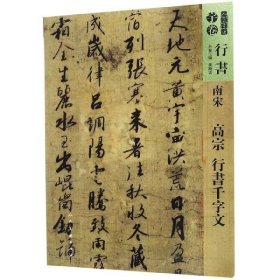 行書
南宋
高宗 行書千字文
天地元黄宇宙洪荒日月盈
宿列張寒来暑往秋收冬藏
成歲律吕調陽雲騰致雨露
霜金生麗水玉出崐崗劒號